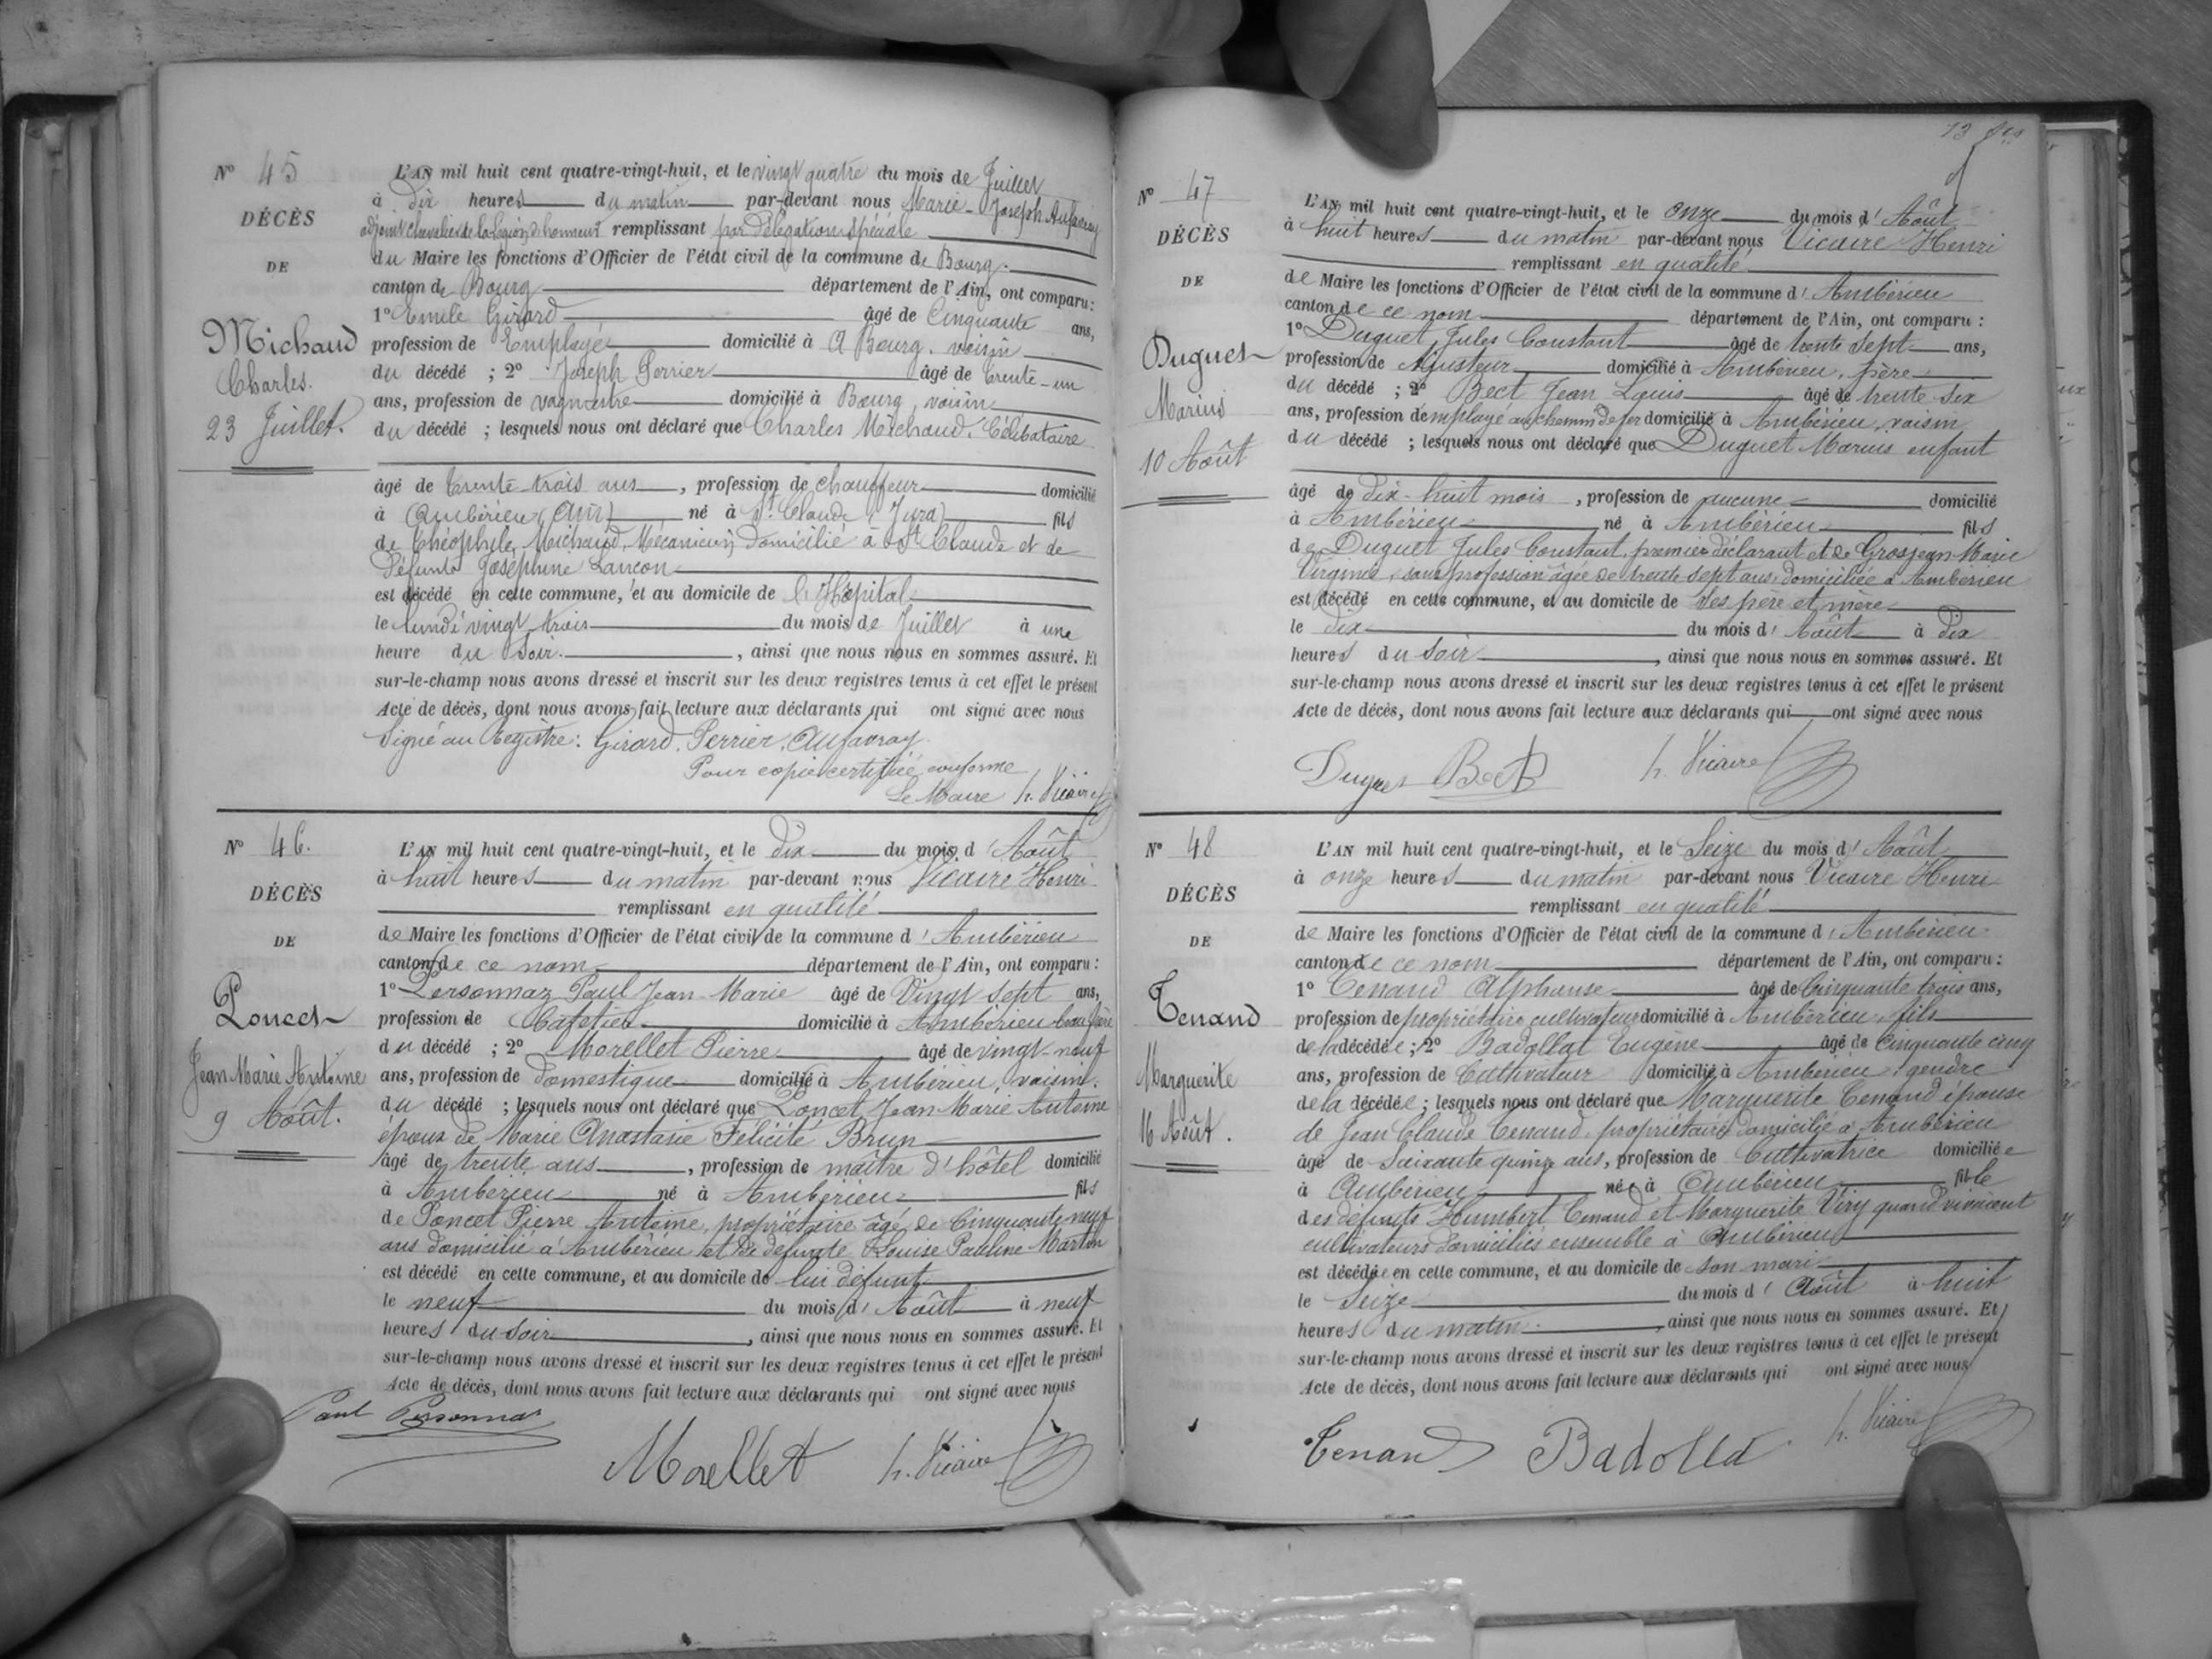 N° 45
DÉCÈS
DE
Michaud
Charles.
23 Juillet.
L'AN mil huit cent quatre-vingt-huit, et le vingt quatre du mois de Juillet
à dix heures du matin par-devant nous Marie-Joseph Aufavray
adjoint chevalier de la Légion d'honneur remplissant par délégation spéciale
du Maire les fonctions d'Officier de l'état civil de la commune de Bourg.
canton de Bourg département de l'Ain, ont comparu :
1° Emile Girard âgé de Cinquante ans,
profession de Employé domicilié à Bourg, voisin
du décédé ; 2° Joseph Perrier âgé de trente-un
ans, profession de vagmestre domicilié à Bourg, voisin
du décédé ; lesquels nous ont déclaré que Charles Michaud, Célibataire
âgé de trente-trois ans, profession de chauffeur domicilié
à Ambérieu (Ain) né à St Claude (Jura) fils
de Théophile Michaud, Mécanicien domicilié à St Claude et de
défunte Joséphine Lançon
est décédé en cette commune, et au domicile de l'Hôpital
le lundi vingt-trois du mois de Juillet à une
heure du soir, ainsi que nous nous en sommes assuré. Et
sur-le-champ nous avons dressé et inscrit sur les deux registres tenus à cet effet le présent
Acte de décès, dont nous avons fait lecture aux déclarants qui ont signé avec nous
Signé au Registre : Girard, Perrier, Aufavray
Pour copie certifiée conforme
Le Maire h. Vicaire
N° 46.
DÉCÈS
DE
Poncet
Jean Marie Antoine
9 Août.
L'AN mil huit cent quatre-vingt-huit, et le dix du mois d'Août
à huit heures du matin par-devant nous Vicaire Henri
remplissant en qualité
de Maire les fonctions d'Officier de l'état civil de la commune d'Ambérieu
canton de ce nom département de l'Ain, ont comparu :
1° Personnaz Paul Jean Marie âgé de Vingt sept ans,
profession de Cafetier domicilié à Ambérieu beau frère
du décédé ; 2° Morellet Pierre âgé de vingt-neuf
ans, profession de domestique domicilié à Ambérieu, voisin.
du décédé ; lesquels nous ont déclaré que Poncet Jean Marie Antoine
époux de Marie Anastasie Félicité Brun
âgé de trente ans, profession de maître d'hôtel domicilié
à Ambérieu né à Ambérieu fils
de Poncet Pierre Antoine, propriétaire âgé de Cinquante neuf
ans domicilié à Ambérieu et de défunte Louise Pauline Marton
est décédé en cette commune, et au domicile de lui défunt
le neuf du mois d'Août à neuf
heures du soir, ainsi que nous nous en sommes assuré. Et
sur-le-champ nous avons dressé et inscrit sur les deux registres tenus à cet effet le présent
Acte de décès, dont nous avons fait lecture aux déclarants qui ont signé avec nous
Paul Personnaz
Morellet h. Vicaire
13
N° 47
DÉCÈS
DE
Duguet
Marius
10 Août
L'AN mil huit cent quatre-vingt-huit, et le onze du mois d'Août
à huit heures du matin par-devant nous Vicaire Henri
remplissant en qualité
de Maire les fonctions d'Officier de l'état civil de la commune d'Ambérieu
canton de ce nom département de l'Ain, ont comparu :
1° Duguet, Jules Constant âgé de trente sept ans,
profession de Ajusteur domicilié à Ambérieu, père
du décédé ; 2° Bect Jean Louis âgé de trente-six
ans, profession de employé au chemin de fer domicilié à Ambérieu, voisin
du décédé ; lesquels nous ont déclaré que Duguet Marius enfant
âgé de dix-huit mois, profession de aucune domicilié
à Ambérieu né à Ambérieu fils
de Duguet Jules Constant, premier déclarant et de Grosjean Marie
Virginie, sans profession âgée de trente sept ans, domiciliée à Ambérieu
est décédé en cette commune, et au domicile de ses père et mère
le dix du mois d'Août à dix
heures du soir, ainsi que nous nous en sommes assuré. Et
sur-le-champ nous avons dressé et inscrit sur les deux registres tenus à cet effet le présent
Acte de décès, dont nous avons fait lecture aux déclarants qui ont signé avec nous
Duguet Bect h. Vicaire
N° 48
DÉCÈS
DE
Tenand
Marguerite
16 Août.
L'AN mil huit cent quatre-vingt-huit, et le Seize du mois d'Août
à onze heures du matin par-devant nous Vicaire Henri
remplissant en qualité
de Maire les fonctions d'Officier de l'état civil de la commune d'Ambérieu
canton de ce nom département de l'Ain, ont comparu :
1° Tenand Alphonse âgé de Cinquante trois ans,
profession de propriétaire cultivateur domicilié à Ambérieu, fils
de la décédée ; 2° Badollat Eugène âgé de Cinquante cinq
ans, profession de Cultivateur domicilié à Ambérieu, gendre
de la décédée ; lesquels nous ont déclaré que Marguerite Tenand épouse
de Jean Claude Tenand, propriétaire domicilié à Ambérieu
âgé de Soixante quinze ans, profession de Cultivatrice domiciliée
à Ambérieu née à Ambérieu fille
des défunts Humbert Tenand et Marguerite Viry quand vivaient
cultivateurs domiciliés ensemble à Ambérieu
est décédée en cette commune, et au domicile de son mari
le Seize du mois d'Août à huit
heures du matin, ainsi que nous nous en sommes assuré. Et
sur-le-champ nous avons dressé et inscrit sur les deux registres tenus à cet effet le présent
Acte de décès, dont nous avons fait lecture aux déclarants qui ont signé avec nous
Tenand Badolla h. Vicaire